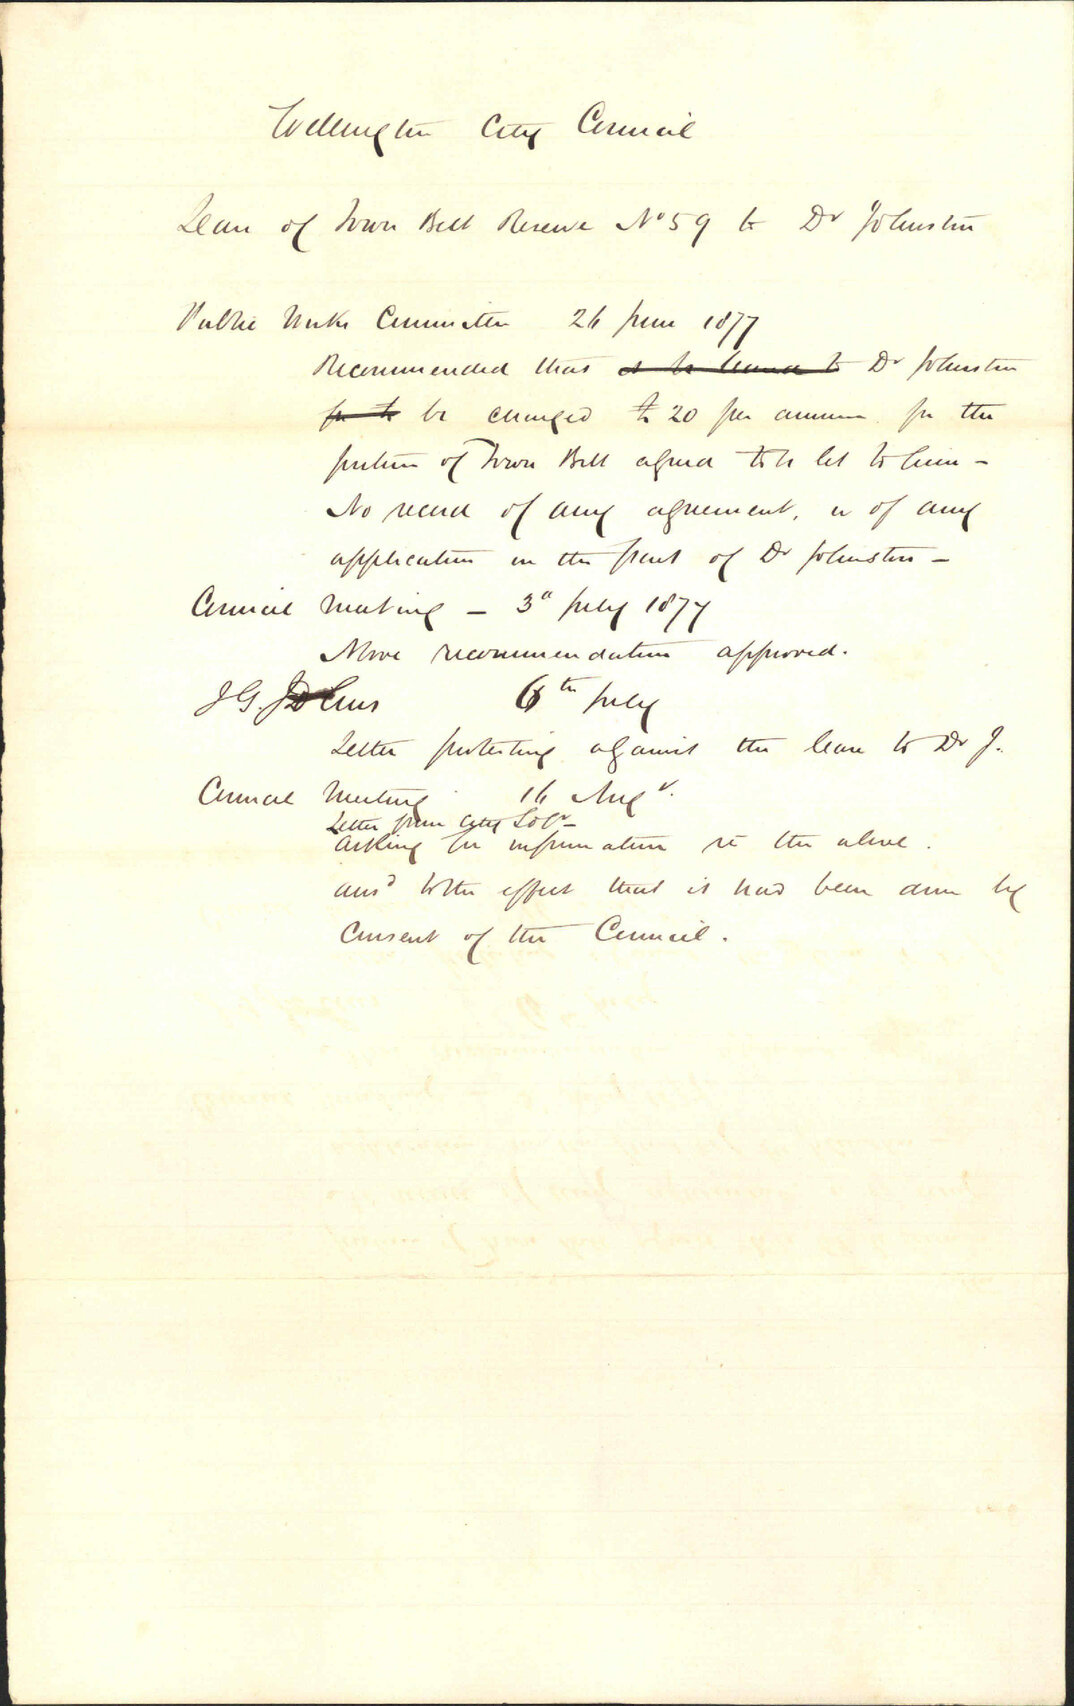 Wellington City Council
Lease of Town Belt Reserve No 59 to Dr Johnston
Public Works Committee 26 June 1877
Recommended that a lease to Dr Johnston
be charged £20 per annum for the
portion of Town Belt agreed to be let to him -
No record of any agreement, or of any
application on the part of Dr Johnston -
Council Meeting - 3d July 1877
Above recommendation approved.
J G. 6th July
Letter protesting against the lease to Dr J.
Council Meeting 16 Augt.
Letter from City Solr -
asking for information re the above.
ansd to the effect that it had been done by
consent of the Council.